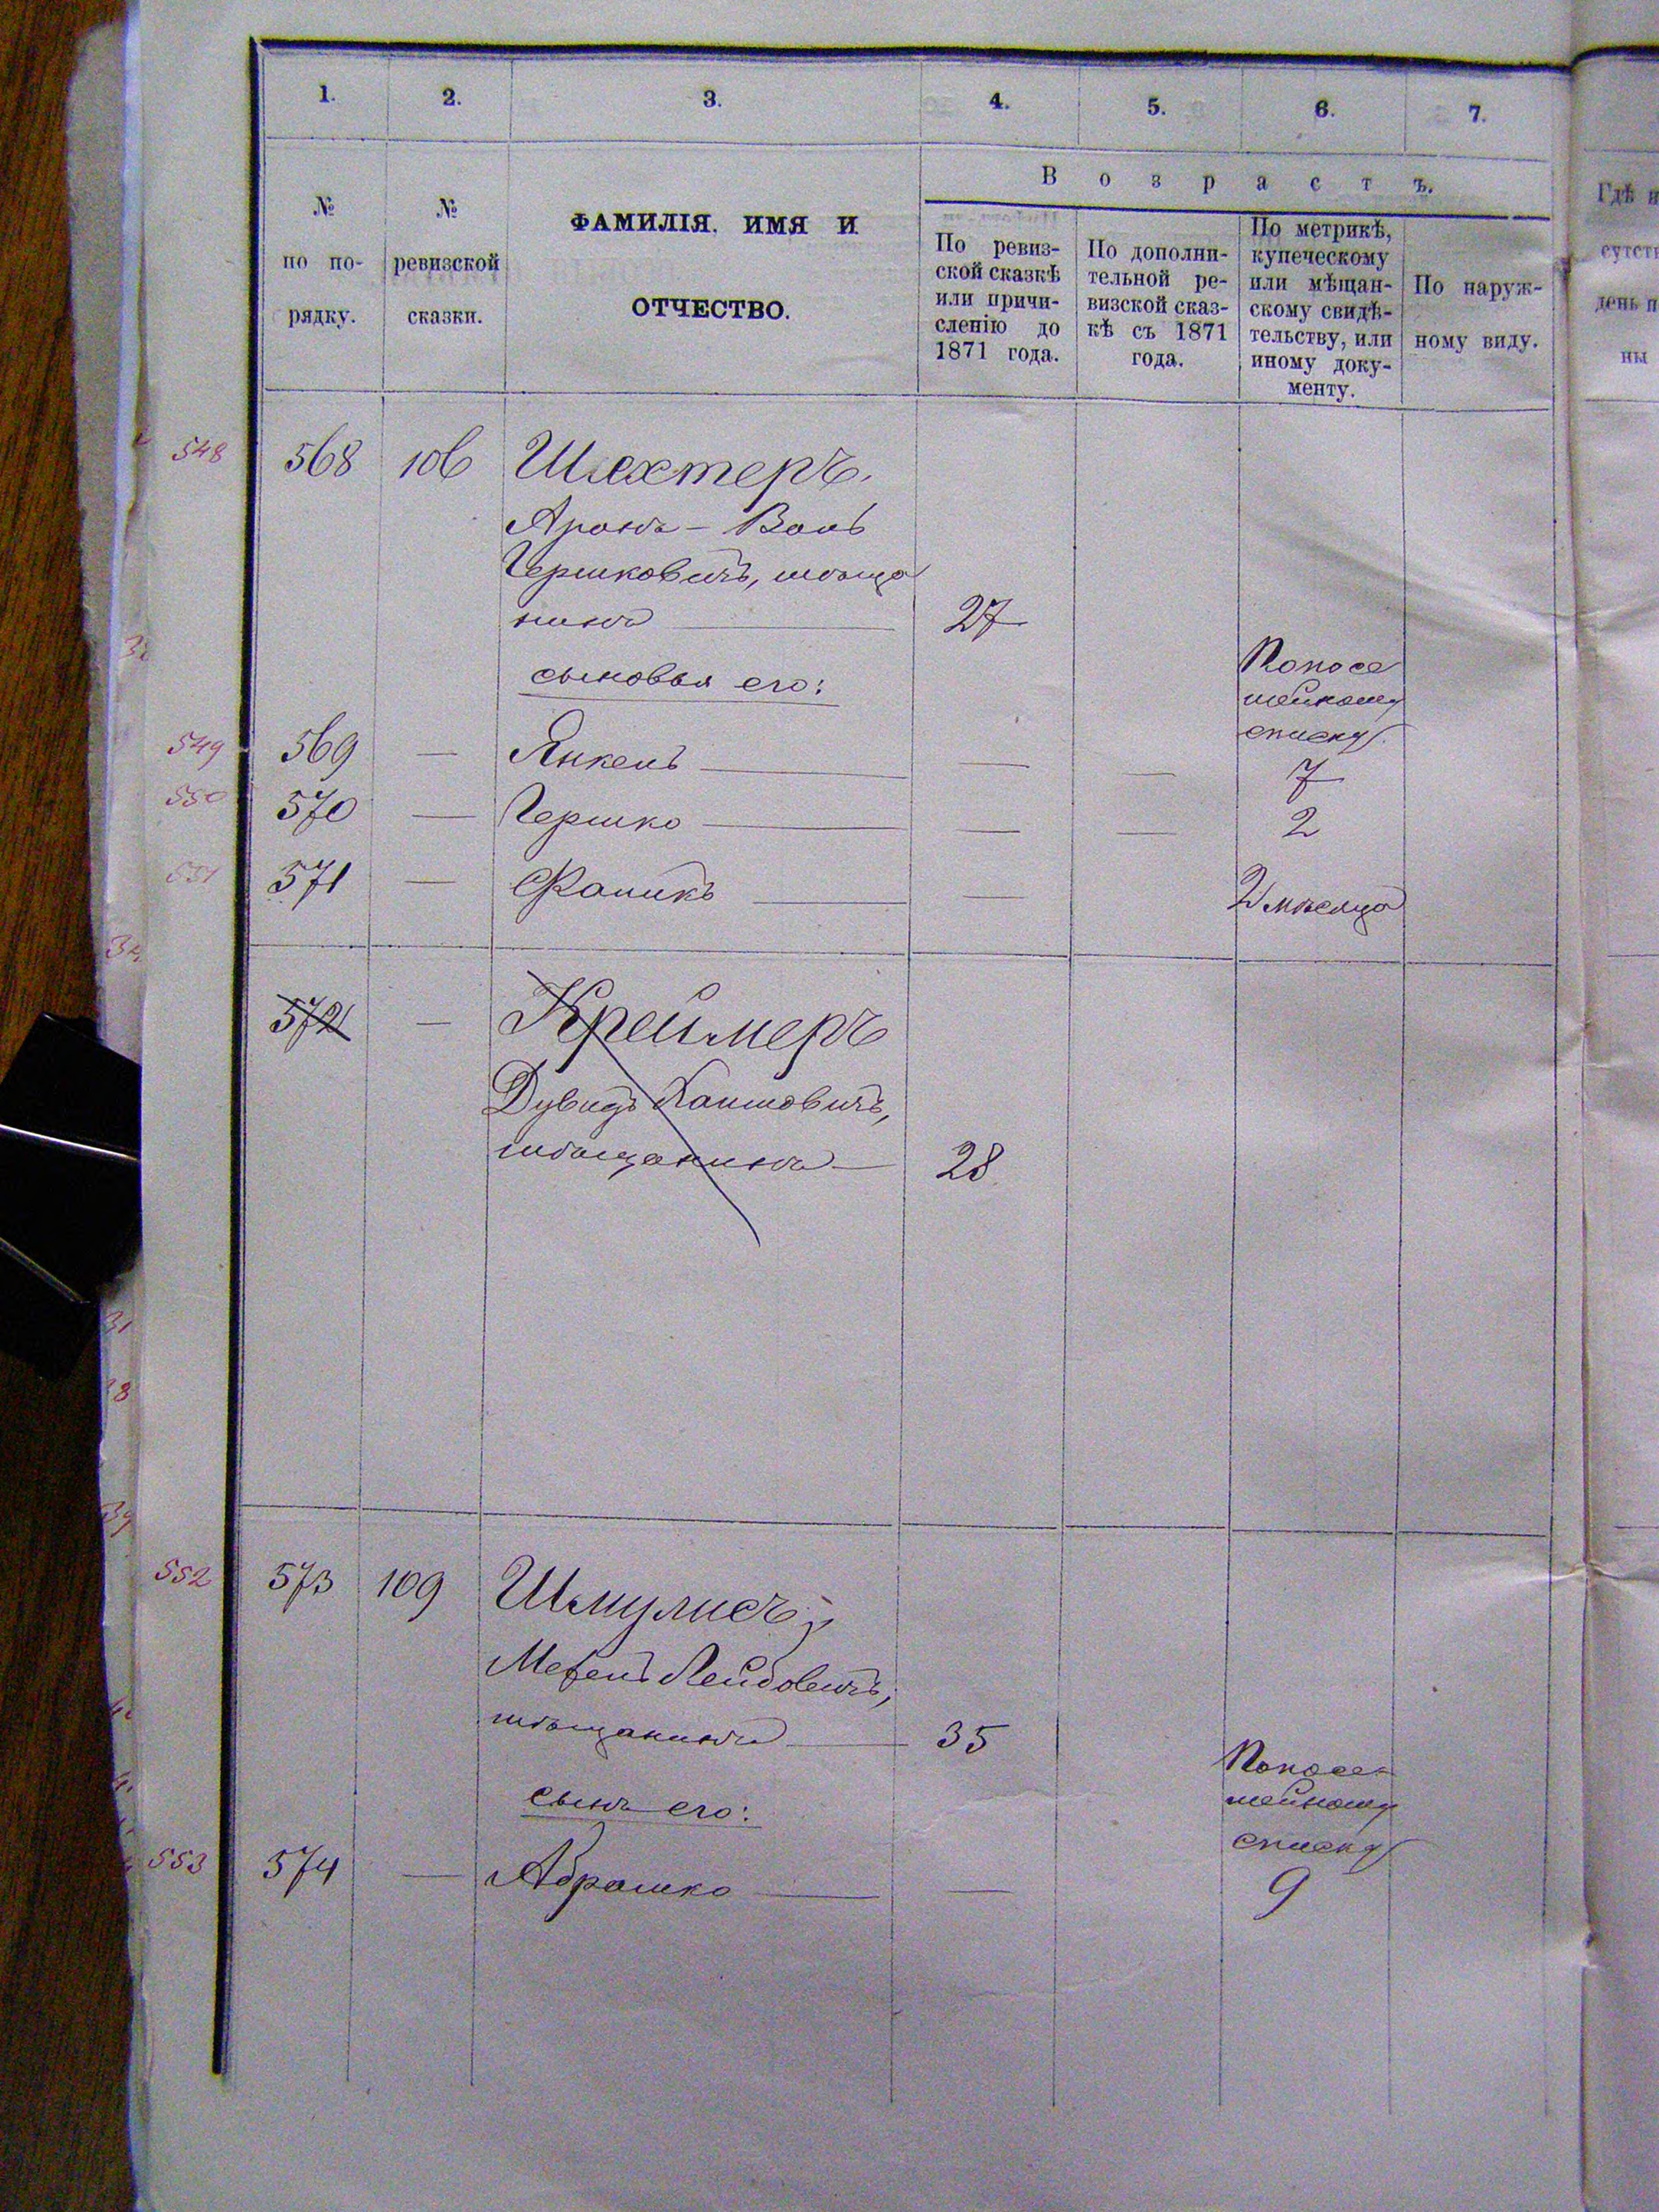 1. 2. 3. 4. 5. 6. 7.
№
по по-
рядку.
№
ревизской
сказки.
ФАМИЛІЯ, ИМЯ И
ОТЧЕСТВО.
Возрастъ.
По ревиз-
ской сказкѣ
или причи-
сленію до
1871 года.
По дополни-
тельной ре-
визской сказ-
кѣ съ 1871
года.
По метрикѣ,
купеческому
или мѣщан-
скому свидѣ-
тельству, или
иному доку-
менту.
По наруж-
ному виду.
Гдѣ и
сутств
день п
ны
548 568 106 Шехтеръ,
Аронъ - Воль
Гершковичъ, мѣща
нинъ 27
сыновья его:
По посе
мейному
списку.
549 569 — Янкель — — 7
550 570 — Гершко — — 2
551 571 — Фроликъ — 2 мѣсяца
572 — Креймеръ
Дувидъ Хаимовичъ,
мѣщанинъ 28
552 573 109 Шмулисъ,
Мехель Лейбовичъ,
мѣщанинъ 35
сынъ его:
По посе-
мейному
списку
553 574 — Абрашко — 9